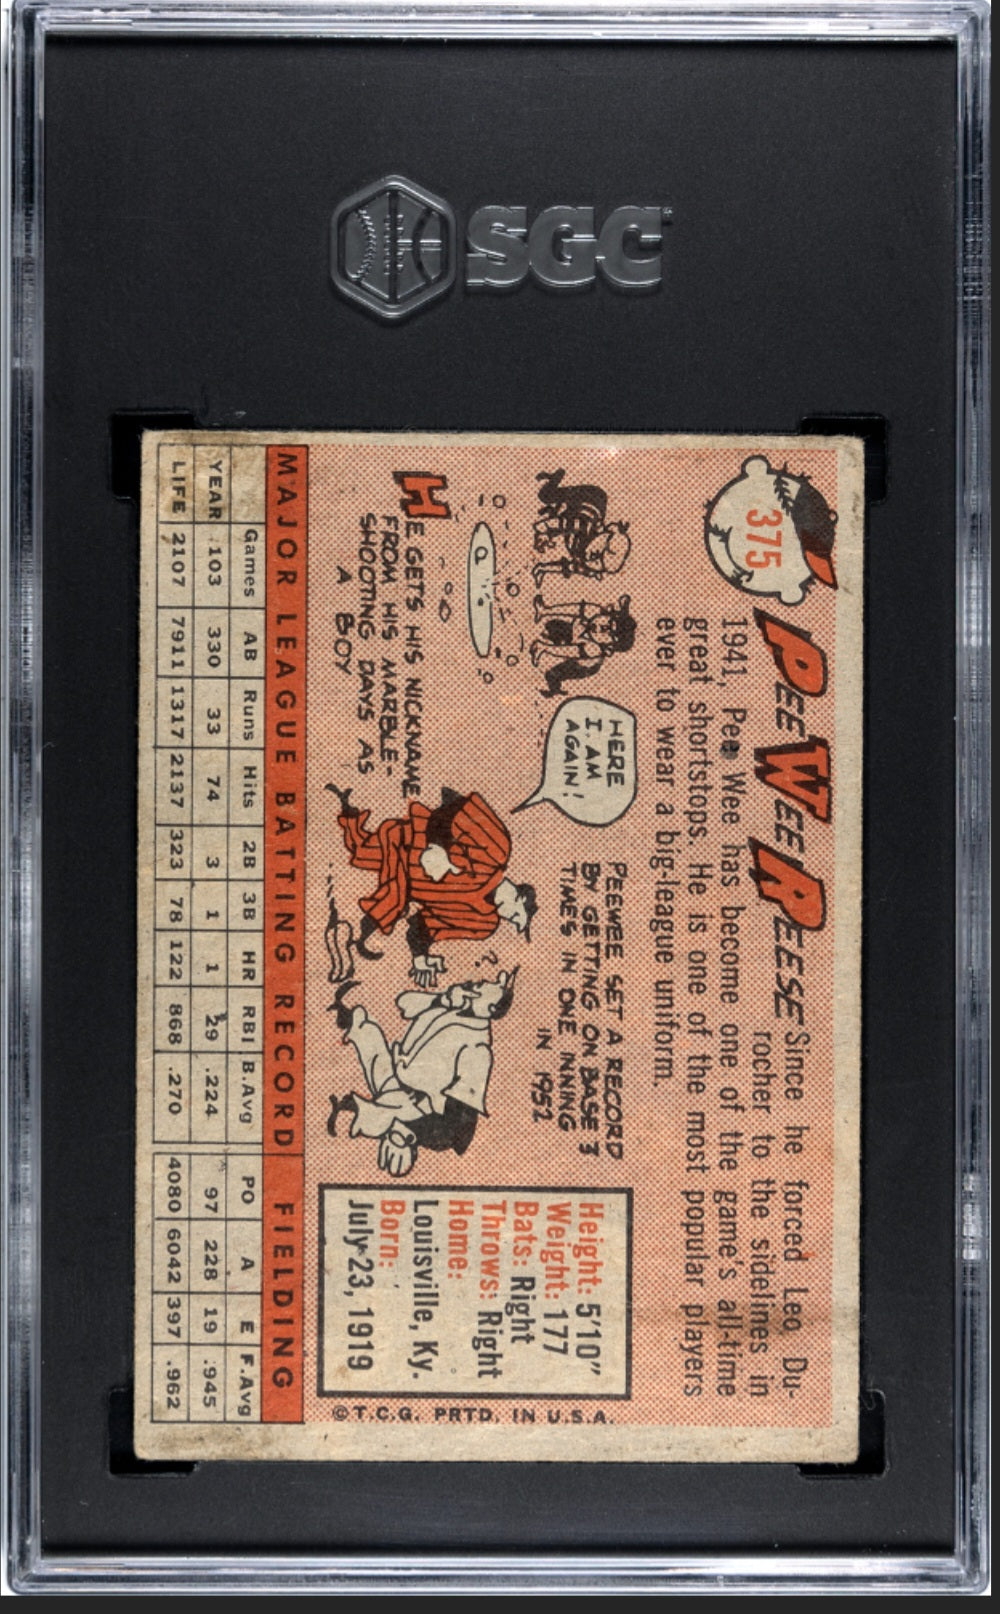 SGC
375
PEE WEE REESE
Since he forced Leo Du-
rocher to the sidelines in
1941, Pee Wee has become one of the game's all-time
great shortstops. He is one of the most popular players
ever to wear a big-league uniform.
HERE
I AM
AGAIN!
PEEWEE SET A RECORD
BY GETTING ON BASE 3
TIMES IN ONE INNING
IN 1952
HE GETS HIS NICKNAME
FROM HIS MARBLE-
SHOOTING DAYS AS
A BOY
?
Height: 5'10"
Weight: 177
Bats: Right
Throws: Right
Home:
Louisville, Ky.
Born:
July 23, 1919
©T.C.G. PRTD. IN U.S.A.
MAJOR LEAGUE BATTING RECORD FIELDING
Games AB Runs Hits 2B 3B HR RBI B.Avg PO A E F.Avg
YEAR 103 330 33 74 3 1 1 29 .224 97 228 19 .945
LIFE 2107 7911 1317 2137 323 78 122 868 .270 4080 6042 397 .962